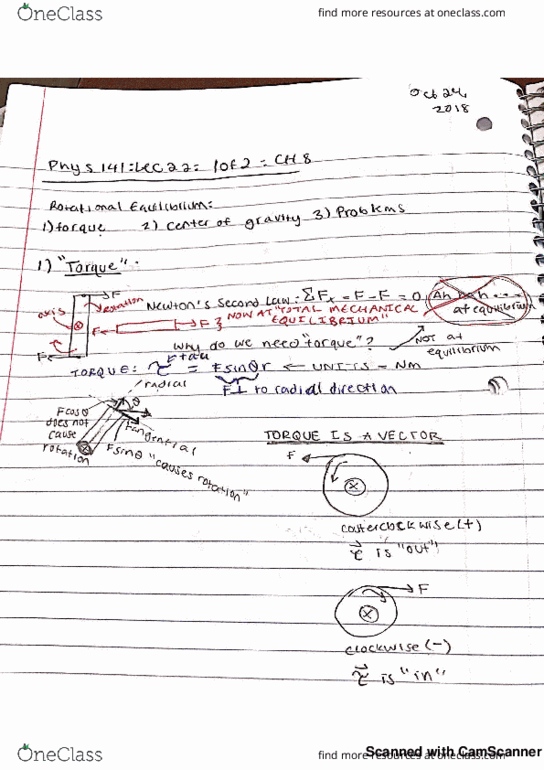 OneClass
find more resources at oneclass.com
Oct 24,
2018
Phys 141: Lec 22: 1 of 2 = CH 8
Rotational Equilibrium:
1) torque 2) center of gravity 3) Problems
1) "Torque":
F
rotation
axis
Newton's Second Law: ΣFx = F - F = 0
at equilibrium
F
F } NOW AT "TOTAL MECHANICAL EQUILIBRIUM"
F
Why do we need "torque"?
NOT at equilibrium
tau
TORQUE: τ = Fsinθr ← UNITS - Nm
F⊥ to radial direction
radial
θ
Fcosθ does not cause rotation
Ftangential
Fsinθ "causes rotation"
TORQUE IS A VECTOR
F
couterclockwise (+)
τ is "out"
F
clockwise (-)
τ is "in"
Scanned with CamScanner
OneClass
find more resources at oneclass.com